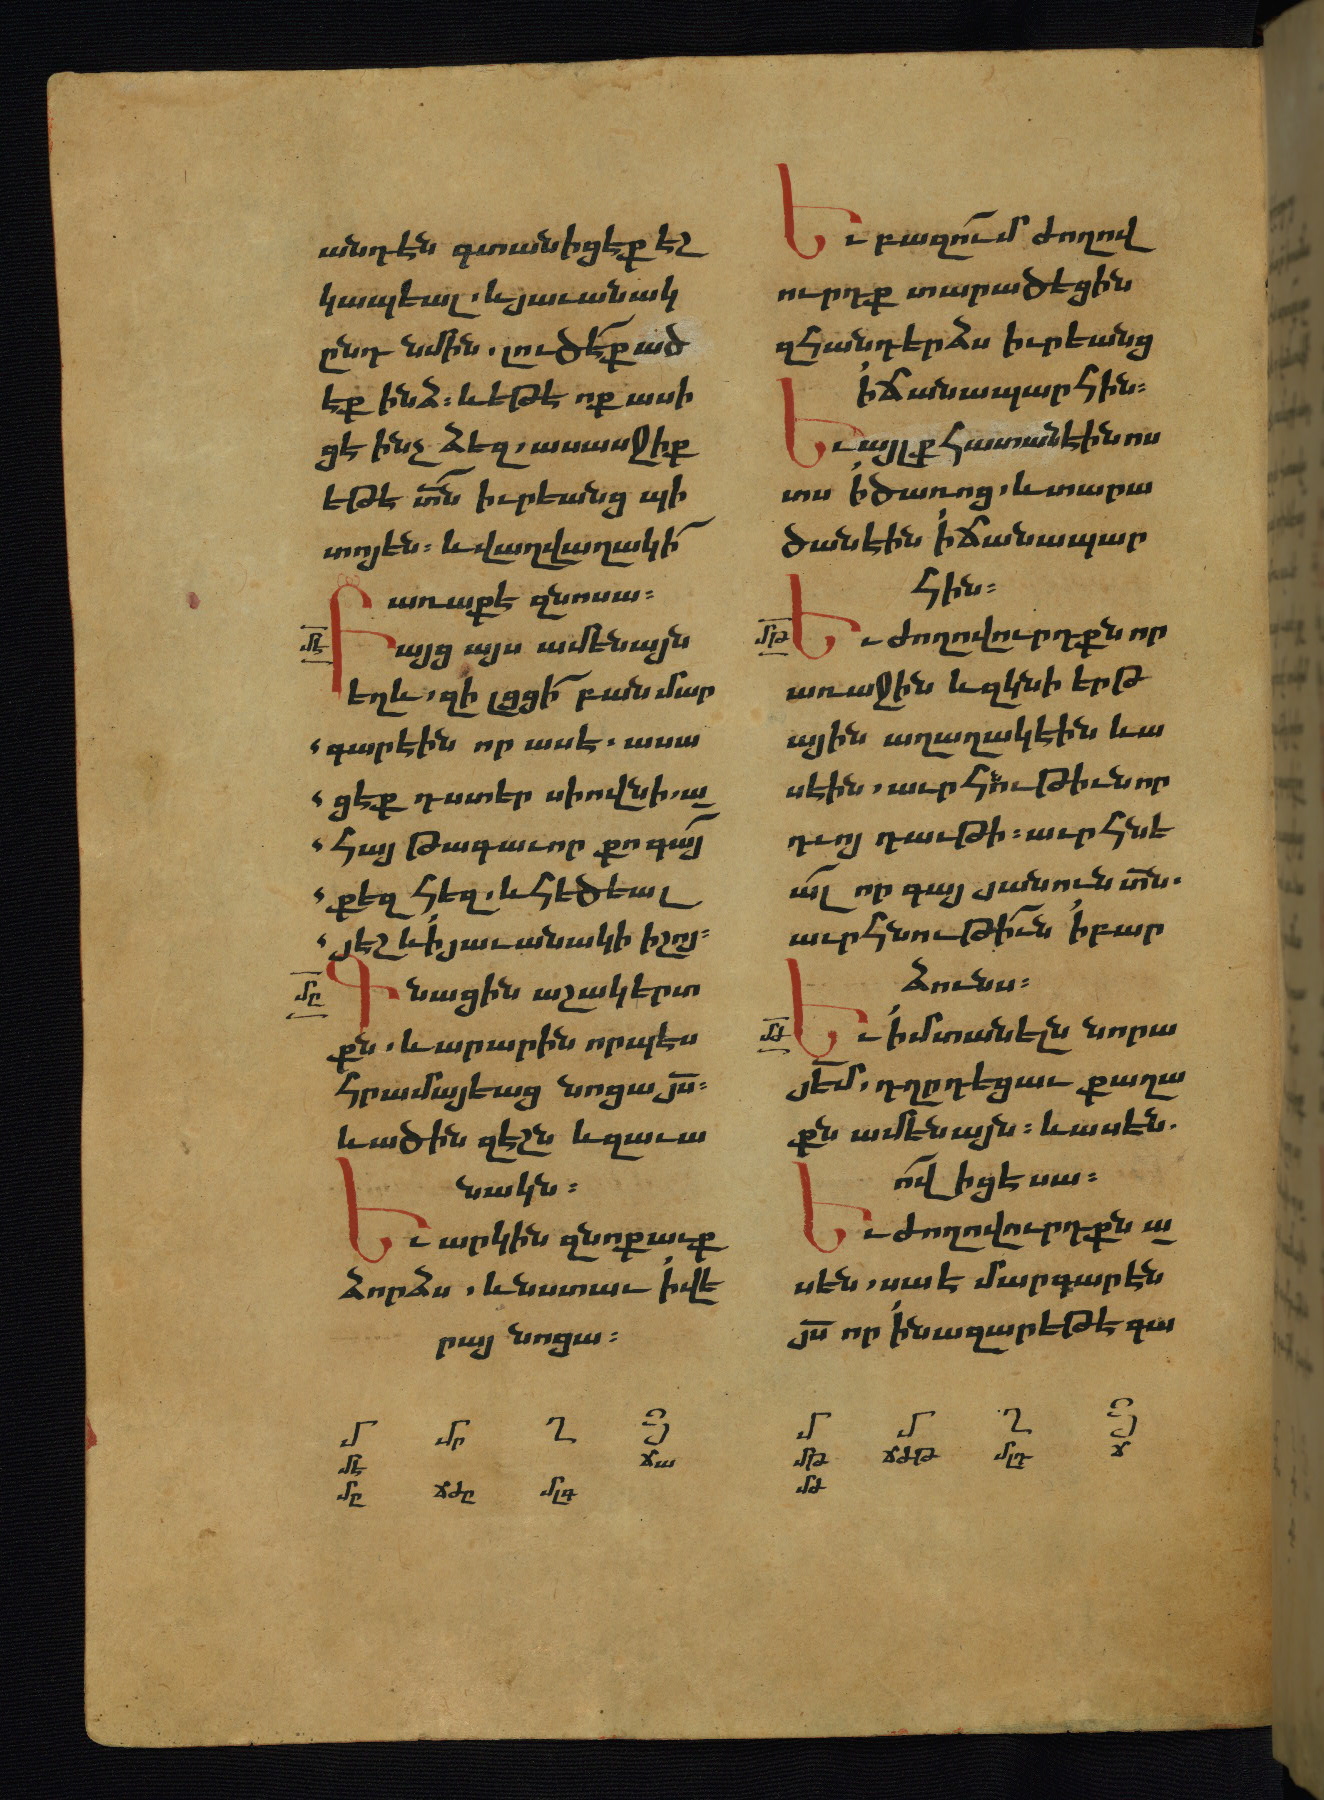 անդէն գտանիցէք էշ
կապեալ. և յաւանակ
ընդ նմին. լուծէ՛ք ած
էք ինձ։ և եթէ ոք ասի
ցէ ինչ ձեզ, ասասջիք
եթէ տն իւրեանց պի
տոյեն։ և վաղվաղակի՛
առաքէ զնոսա։
մէ Բայց այս ամենայն
եղև. զի լցցի՛ բան մար
գարէին որ ասէ. ասա
ցէք դստեր սիովնի. ա
հայ թագաւոր քո գա՛յ
քեզ հեզ. և հեծեալ
յէշ և ի յաւանակի իշոյ։
մը Գնացին աշակերտ
քն. և արարին որպէս
հրամայեաց նոցա յս։
և ածին զէշն և զաւա
նակն։
Եւ արկին զնոքաւք
ձորձս. և նստաւ ի վե
րայ նոցա։
մ մր ղ յ
մէ ճա
մը ճժը մլգ
Եւ բազո՛ւմ ժողով
ուրդք տարածեցին
զհանդերձս իւրեանց
ի ճանապարհին։
Եւ այլք հատանէին ոս
տս ի ծառոց. և տարա
ծանէին ի ճանապար
հին։
մթ Եւ ժողովուրդքն որ
առաջին և զկնի երթ
ային աղաղակէին և ա
սէին. աւրհնութիւն որ
դւոյ դաւթի։ աւրհնե
ա՛լ որ գայ յանուն տն.
աւրհնութի՛ւն ի բար
ձունս։
մժ Եւ ի մտանելն նորա
յէմ. դղրդեցաւ քաղա
քն ամենայն։ և ասեն.
ո՛վ իցէ սա։
Եւ ժողովուրդքն ա
սեն. սա է մարգարէն
յս որ ի նազարեթէ գա
մ մ ղ յ
մթ ճժթ մլդ ճ
մժ